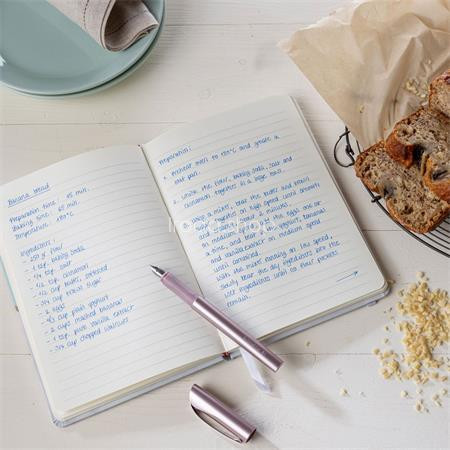 Banana bread
Preparation time : 15 min.
Baking time : 65 min.
Temperature : 180°C
Ingredients :
flour
- 1 tsp. baking soda
- 1/4 tsp. salt
cinnamon
butter, softened
brown sugar
cup plain yoghurt
- 2 cups mashed bananas
- 1 tsp. pure vanilla extract
- 3/4 cup chopped walnuts
Preparation :
1. Preheat oven to 180°C and grease a
loaf pan.
2. Whisk the flour, baking soda, salt and
cinnamon together in a
a mixer, beat the butter and brown
on high speed until smooth and
On medium speed, add the eggs one at
a time, and
in yoghurt, banana
and vanilla extract on medium speed
until combined.
With the mixer running on low speed,
slowly beat the dry ingredients into the
wet ingredients until no flour pockets
remain.